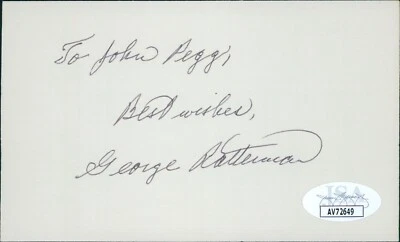 To John Pegg,
Best wishes,
George Ratterman
JSA
AV72649